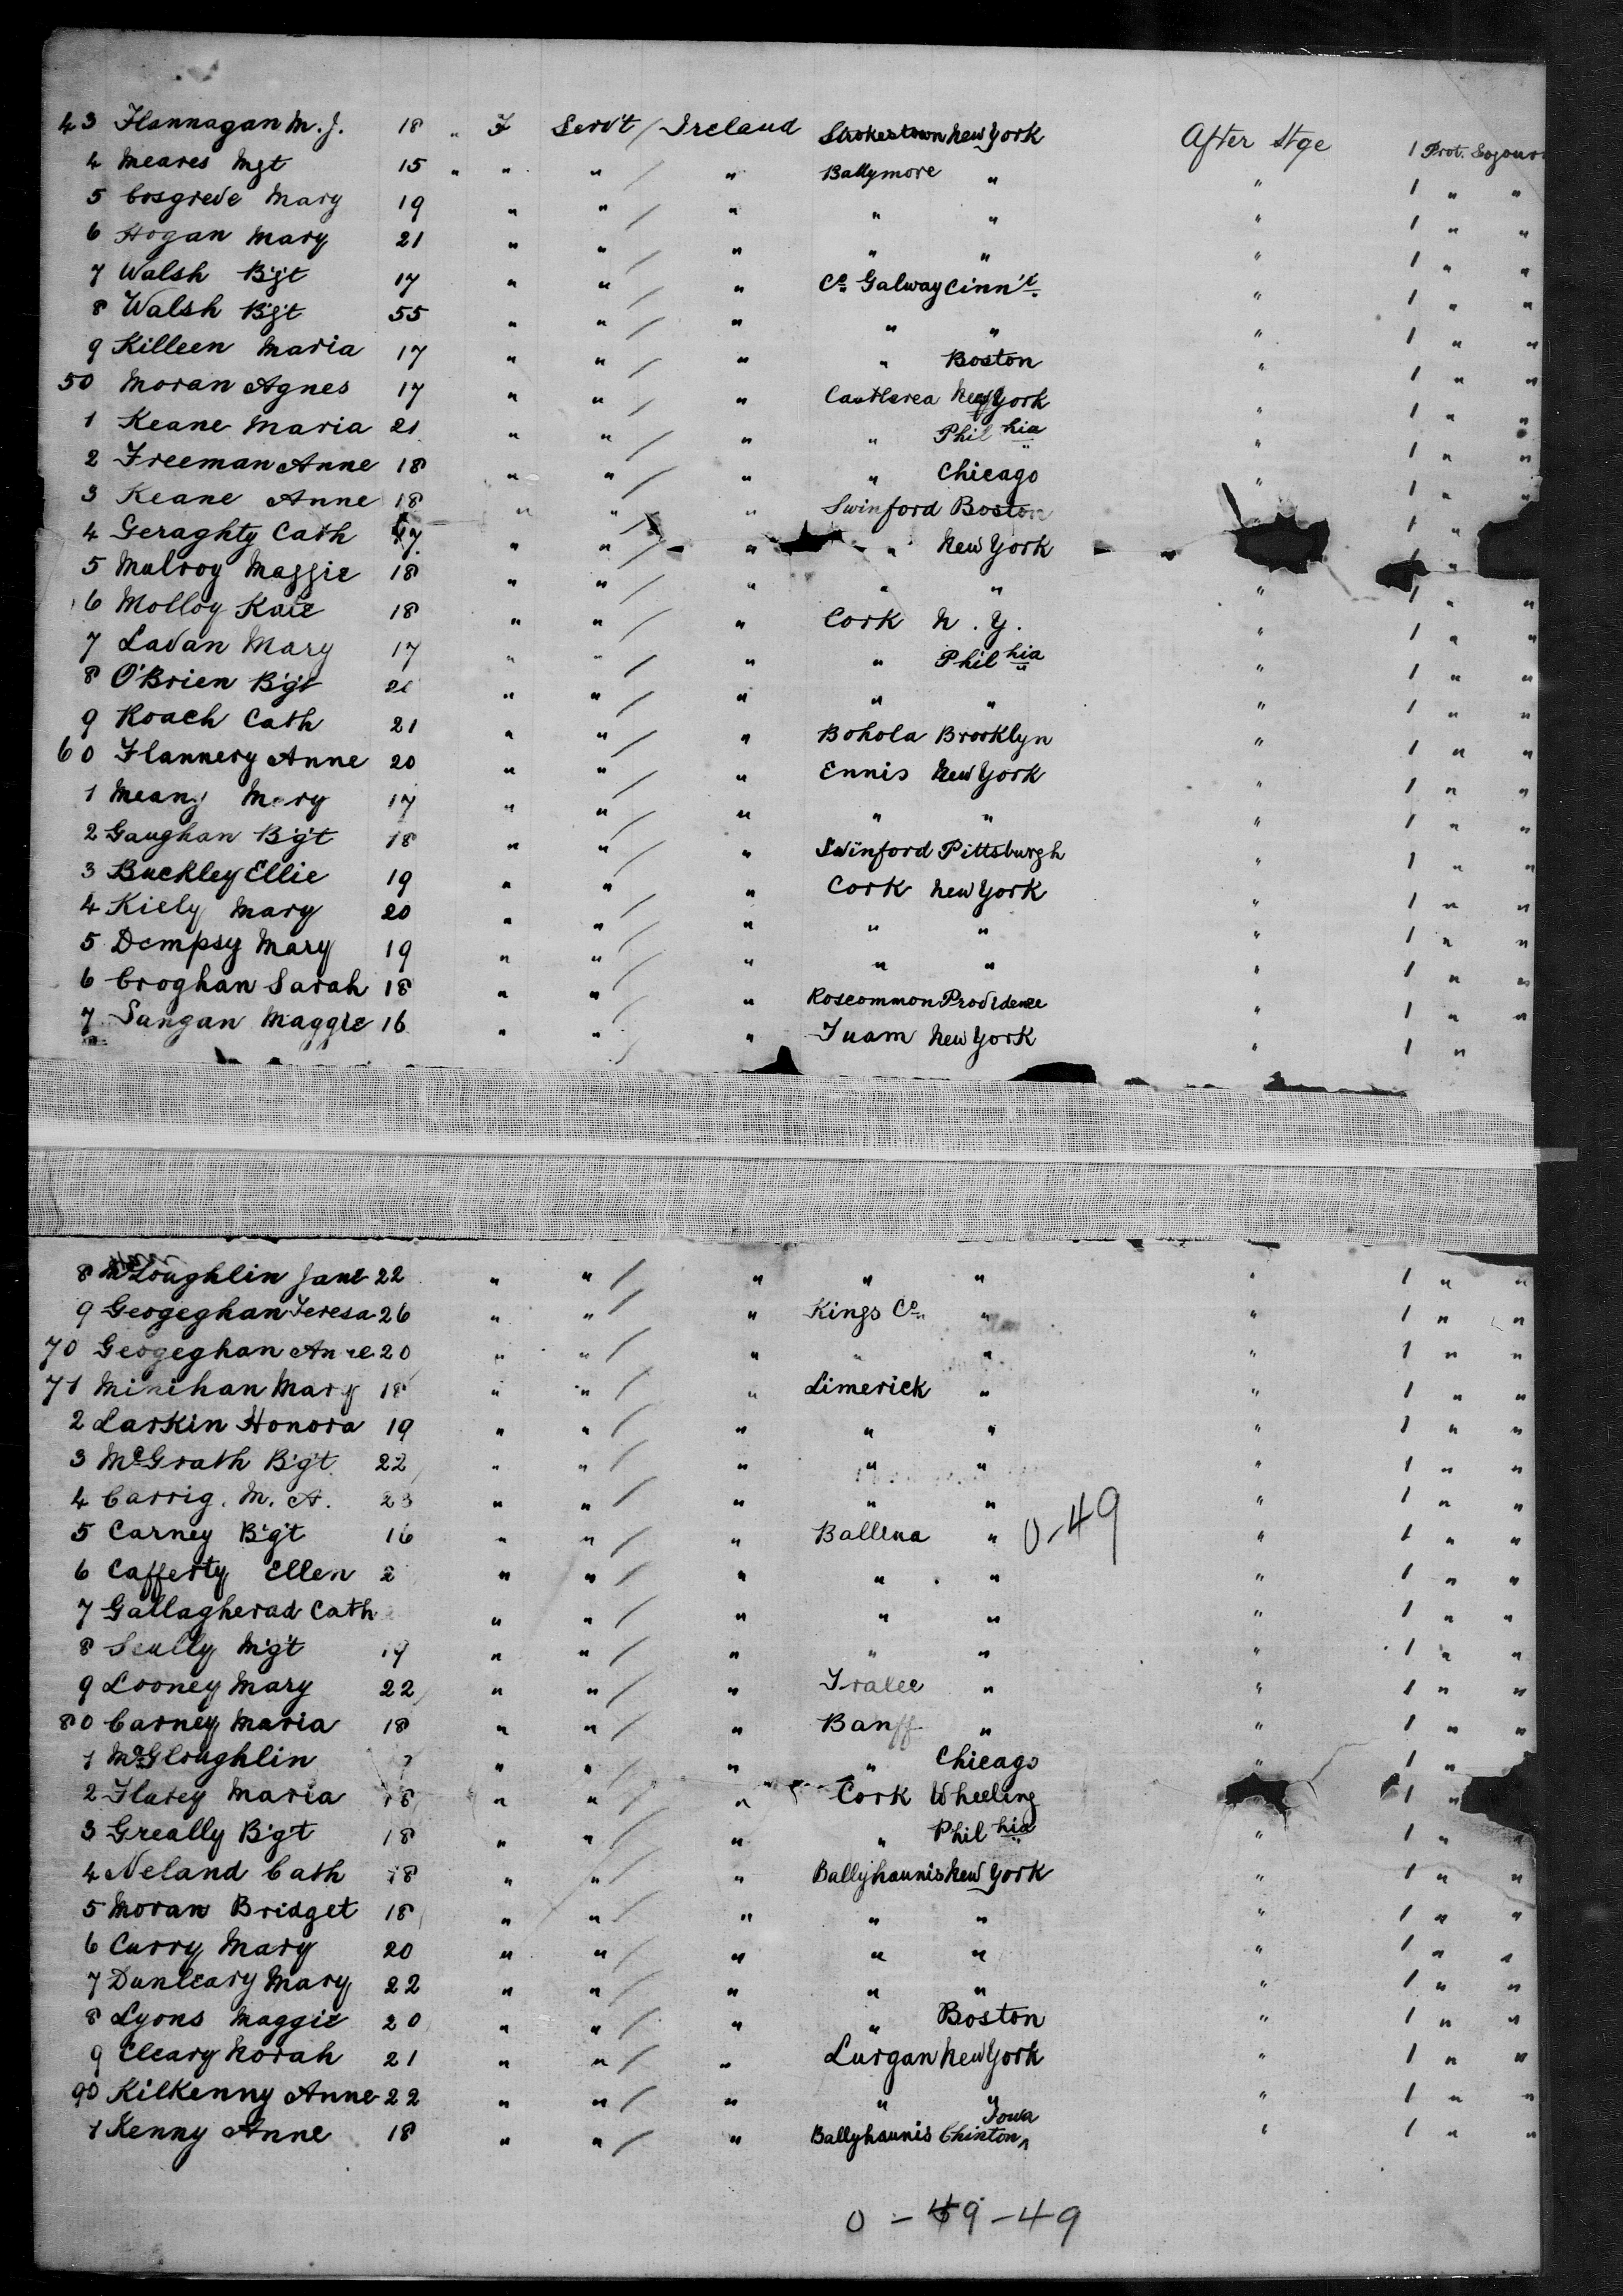 43 Flannagan M. J. 18 " F Serv't / Ireland Strokestown New York After Stge 1 Prot. Sojour
4 Meares Mgt 15 " " " / " Ballymore " " 1 " "
5 Cosgreve Mary 19 " " / " " " " 1 " "
6 Hogan Mary 21 " " / " " " " 1 " "
7 Walsh Bgt 17 " " / " Co. Galway Cinn't. " 1 " "
8 Walsh Bgt 55 " " / " " " " 1 " "
9 Killeen Maria 17 " " / " " Boston " 1 " "
50 Moran Agnes 17 " " / " Castlerea New York " 1 " "
1 Keane Maria 21 " " / " " Phil hia " 1 " "
2 Freeman Anne 18 " " / " " Chicago " 1 " "
3 Keane Anne 18 " " / " Swinford Boston " 1 "
4 Geraghty Cath " " / " " New York 1 "
5 Mulroy Maggie 18 " " / " " " " 1 " "
6 Molloy Kate 18 " " / " Cork N. Y. " 1 " "
7 Lavan Mary 17 " " / " " Phil hia " 1 " "
8 O'Brien Bgt " " / " " " " 1 " "
9 Roach Cath 21 " " / " Bohola Brooklyn " 1 " "
60 Flannery Anne 20 " " / " Ennis New York " 1 " "
1 Meany Mary 17 " " / " " " " 1 " "
2 Gaughan Bgt 18 " " / " Swinford Pittsburgh " 1 " "
3 Buckley Ellie 19 " " / " Cork New York " 1 " "
4 Kiely Mary 20 " " / " " " " 1 " "
5 Dempsy Mary 19 " " / " " " " 1 " "
6 Croghan Sarah 18 " " / " Roscommon Providence " 1 " "
7 Sangan Maggie 16 " " / " Tuam New York " 1 "
8 McLoughlin Jane 22 " " / " " " " 1 " "
9 Geogeghan Teresa 26 " " / " Kings Co. " " 1 " "
70 Geogeghan Anne 20 " " / " " " " 1 " "
71 Minihan Mary 18 " " / " Limerick " " 1 " "
2 Larkin Honora 19 " " / " " " " 1 " "
3 McGrath Bgt. 22 " " / " " " " 1 " "
4 Carrig. M. A. 23 " " / " " " " 1 " "
5 Carney Bgt 16 " " / " Ballina " 0-49 " 1 " "
6 Cafferty Ellen 2 " " / " " " " 1 " "
7 Gallagherad Cath " " / " " " " 1 " "
8 Scully Mgt 19 " " / " " " " 1 " "
9 Looney Mary 22 " " / " Tralee " " 1 " "
80 Carney Maria 18 " " / " Banff " " 1 " "
1 McGloughlin " " / " " Chicago " 1 "
2 Flurey Maria 18 " " / " Cork Wheeling 1 "
3 Greally Bgt 18 " " / " " Phil hia " 1 " "
4 Neland Cath 18 " " / " Ballyhaunis New York " 1 " "
5 Moran Bridget 18 " " / " " " " 1 " "
6 Curry Mary 20 " " / " " " " 1 " "
7 Dunleary Mary 22 " " / " " " " 1 " "
8 Lyons Maggie 20 " " / " " Boston " 1 " "
9 Cleary Norah 21 " " / " Lurgan New York " 1 " "
90 Kilkenny Anne 22 " " / " " " " 1 " "
1 Kenny Anne 18 " " / " Ballyhaunis Clinton Iowa " 1 " "
0 - 49 - 49